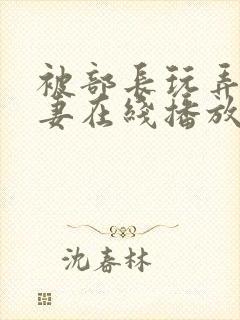 被部长玩弄
妻在线播放
沈春林